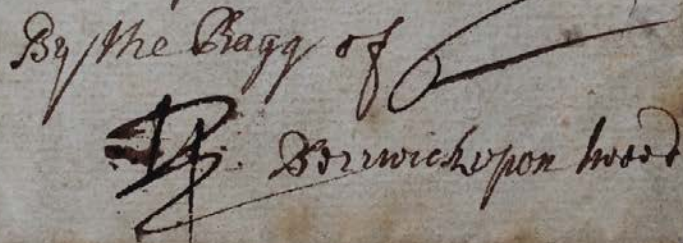 By the Bagg of
Berwick upon tweed